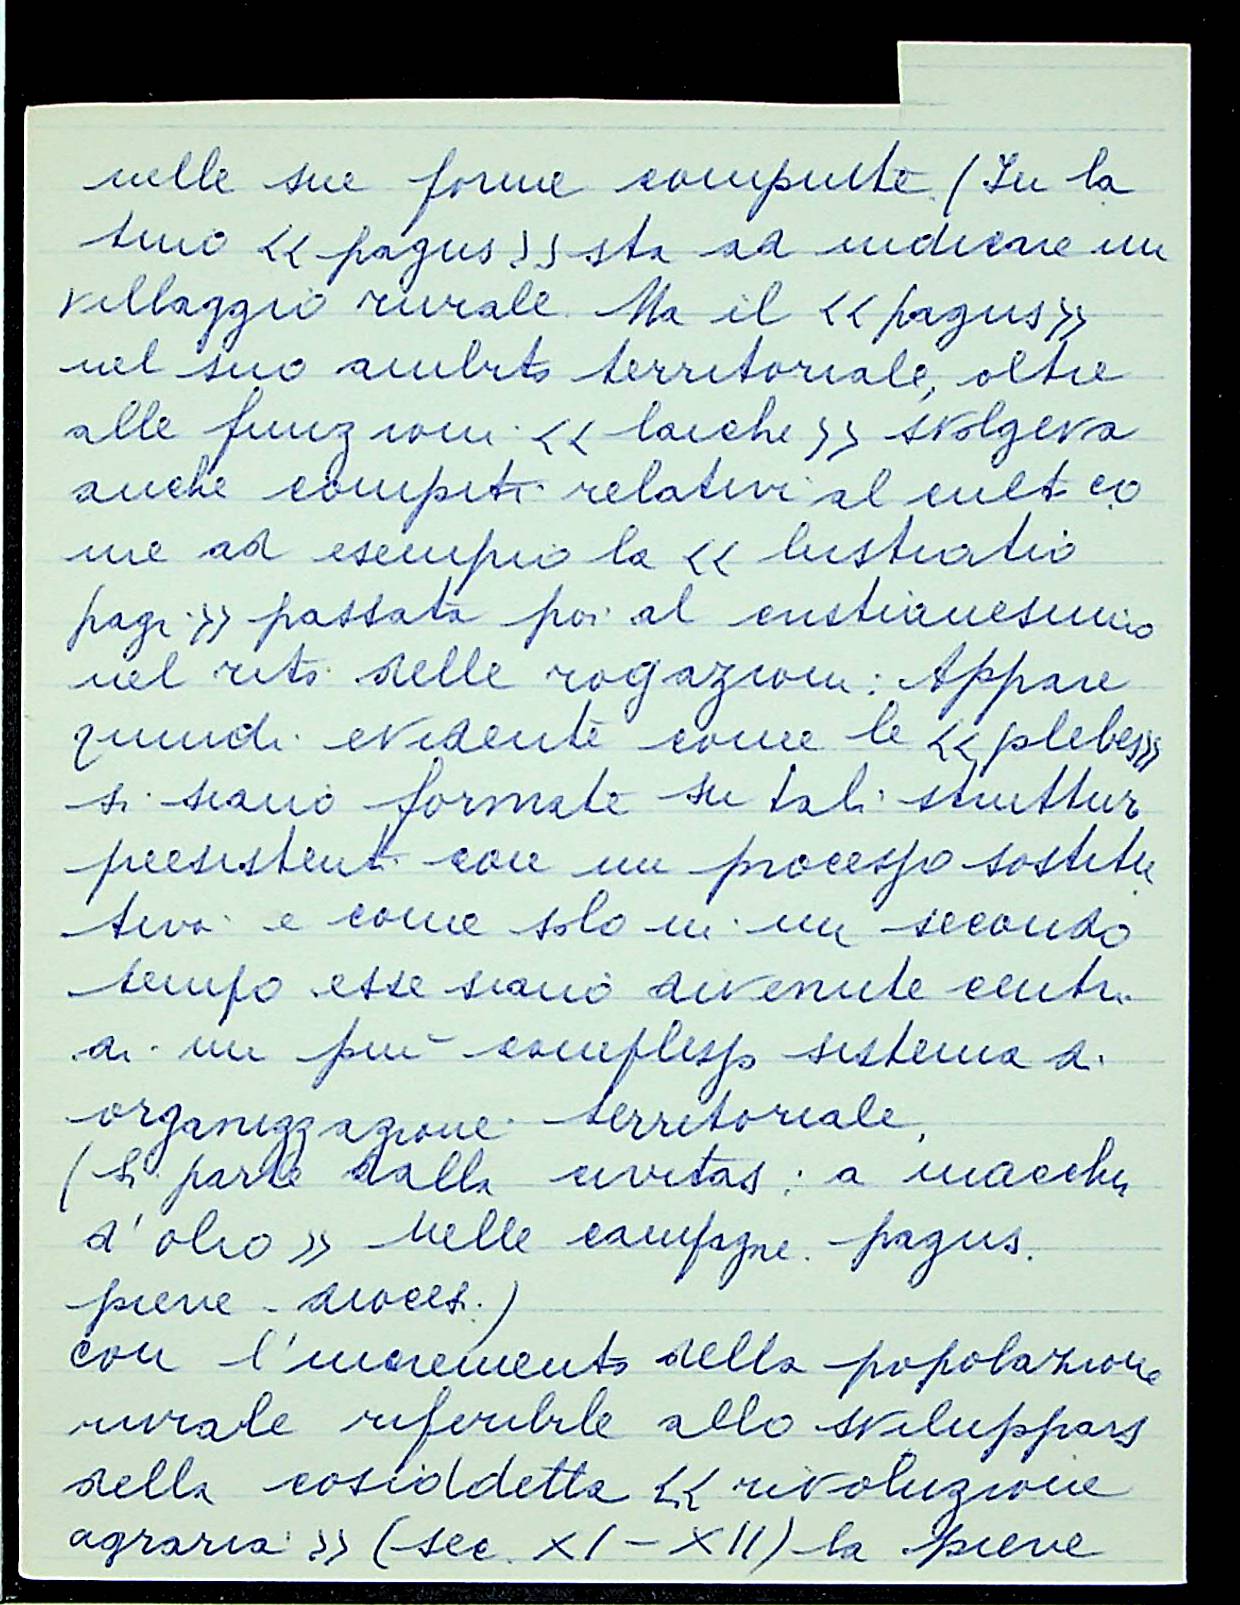 nelle sue forme compiute. (In la
tino << pagus >> sta ad indicare un
villaggio rurale. Ma il << pagus >>
nel suo ambito territoriale, oltre
alle funzioni << laiche >> svolgeva
anche compiti relativi al cult co
me ad esempio la << lustratio
pagi >> passata poi al cristianesimo
nel rito delle rogazioni: Appare
quindi evidente come le << plebes >>
si siano formate su tali struttur
preesistenti con un processo sostitu
tivo e come solo in un secondo
tempo esse siano divenute centri
di un più complesso sistema di
organizzazione territoriale.
(Si parte dalla civitas: a macchia
d'olio >> Nelle campagne. pagus.
pieve - diocesi.)
con l'incremento della popolazione
rurale riferibile allo svilupparsi
della cosiddetta << rivoluzione
agraria >> (sec. XI - XII) la pieve